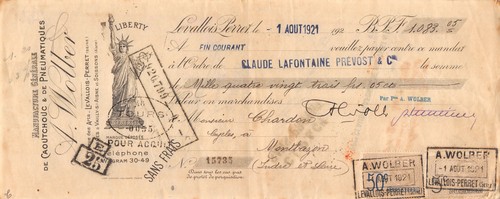 MANUFACTURE GÉNÉRALE
DE CAOUTCHOUC & DE PNEUMATIQUES
A. Wolber
LEVALLOIS-PERRET (SEINE)
SOISSONS
LIBERTY
POUR ACQUIT
Téléphone
WAGRAM 30-49
E
25
SANS FRAIS
Levallois-Perret, le - 1 AOUT 1921 192 B.P.F. 1.083.05
A FIN COURANT veuillez payer contre ce mandat
à l'Ordre de CLAUDE LAFONTAINE PREVOST & Cie la somme
de Mille quatre vingt trois frs 05 cs
Valeur en marchandises
Par Pon A. WOLBER
Monsieur Chardon
Cycles, à
Montbazon
(Indre et Loire)
No 15785
A. WOLBER
50c
LEVALLOIS-PERRET
A. WOLBER
-1 AOUT 1921
LEVALLOIS-PERRET (Seine)